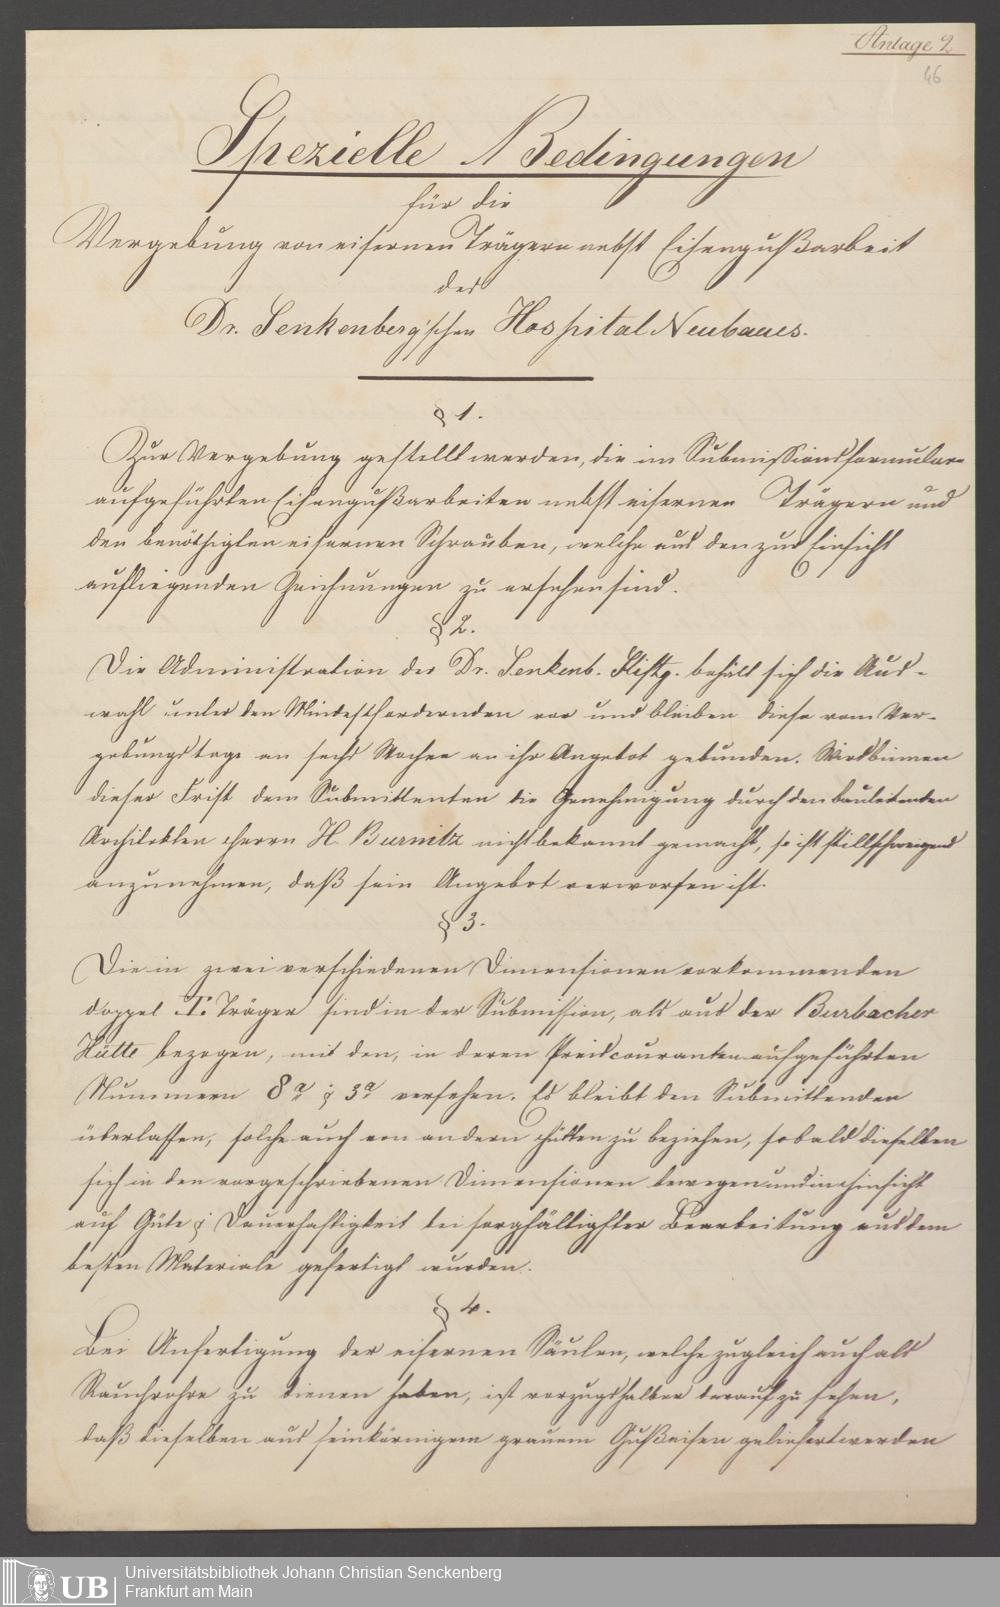 Anlage 2
46
Spezielle Bedingungen
für die
Vergebung von eisernen Trägern nebst Eisengußarbeit
des
Dr. Senkenberg'schen Hospital Neubaues.
§ 1.
Zur Vergebung gestellt werden, die im Submissionsformular
aufgeführten Eisengußarbeiten nebst eisernen Trägern und
den benöthigten eisernen Schrauben, welche aus den zur Einsicht
aufliegenden Zeichnungen zu ersehen sind.
§ 2.
Die Administration der Dr. Senkenb. Stiftg. behält sich die Aus-
wahl unter den Mindestfordernden vor und bleiben diese vom Ver-
gebungstage an sechs Wochen an ihr Angebot gebunden. Wird binnen
dieser Frist dem Submittenten die Genehmigung durch den bauleitenden
Architekten Herrn H. Burnitz nicht bekannt gemacht, so ist stillschweigend
anzunehmen, daß sein Angebot verworfen ist.
§ 3.
Die in zwei verschiedenen Dimensionen vorkommenden
doppel T. Träger sind in der Submission, als aus der Burbacher
Hütte bezogen, mit den, in deren Preiscouranten aufgeführten
Nummern 8a & 3a versehen. Es bleibt den Submittenden
überlassen, solche auch von andern Hütten zu beziehen, sobald dieselben
sich in den vorgeschriebenen Dimensionen bewegen und in Hinsicht
auf Güte & Dauerhaftigkeit bei sorgfältigster Bearbeitung aus dem
besten Materiale gefertigt wurden.
§ 4.
Bei Anfertigung der eisernen Säulen, welche zugleich auch als
Rauchrohre zu dienen haben, ist vorzugshalber darauf zu sehen,
daß dieselben aus feinkörnigem grauem Gußeisen geliefert werden
UB
Universitätsbibliothek Johann Christian Senckenberg
Frankfurt am Main